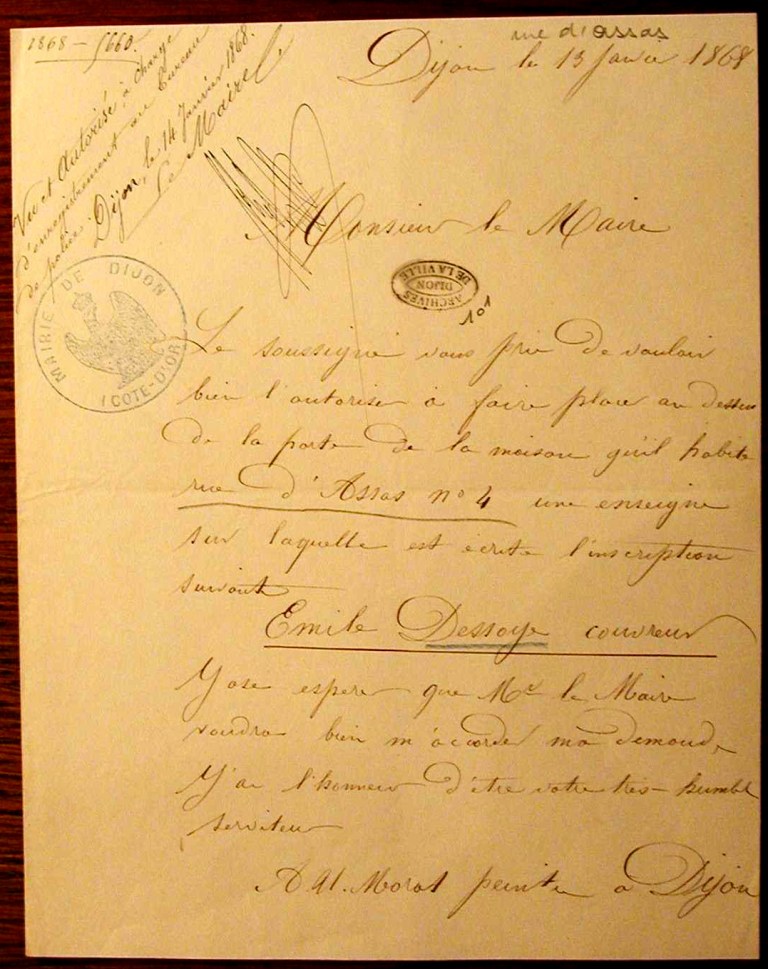 1868 - 5660.
rue d'assas
Dijon le 13 Janvier 1868
Vu et Autorisé à charge
d'enregistrement au bureau
de police.
Dijon, le 14 Janvier 1868.
Le Maire
Monsieur le Maire
MAIRIE DE DIJON
(COTE-D'OR)
ARCHIVES
DIJON
DE LA VILLE
101
Le soussigné vous prie de vouloir
bien l'autoriser à faire placer au dessus
de la porte de la maison qu'il habite
rue d'Assas n° 4 une enseigne
sur laquelle est écrite l'inscription
suivante
Emile Dessoye couvreur
J'ose espere que Mr le Maire
voudra bien m'accorder ma demande
J'ai l'honneur d'être votre très-humble
serviteur
peintre a Dijon